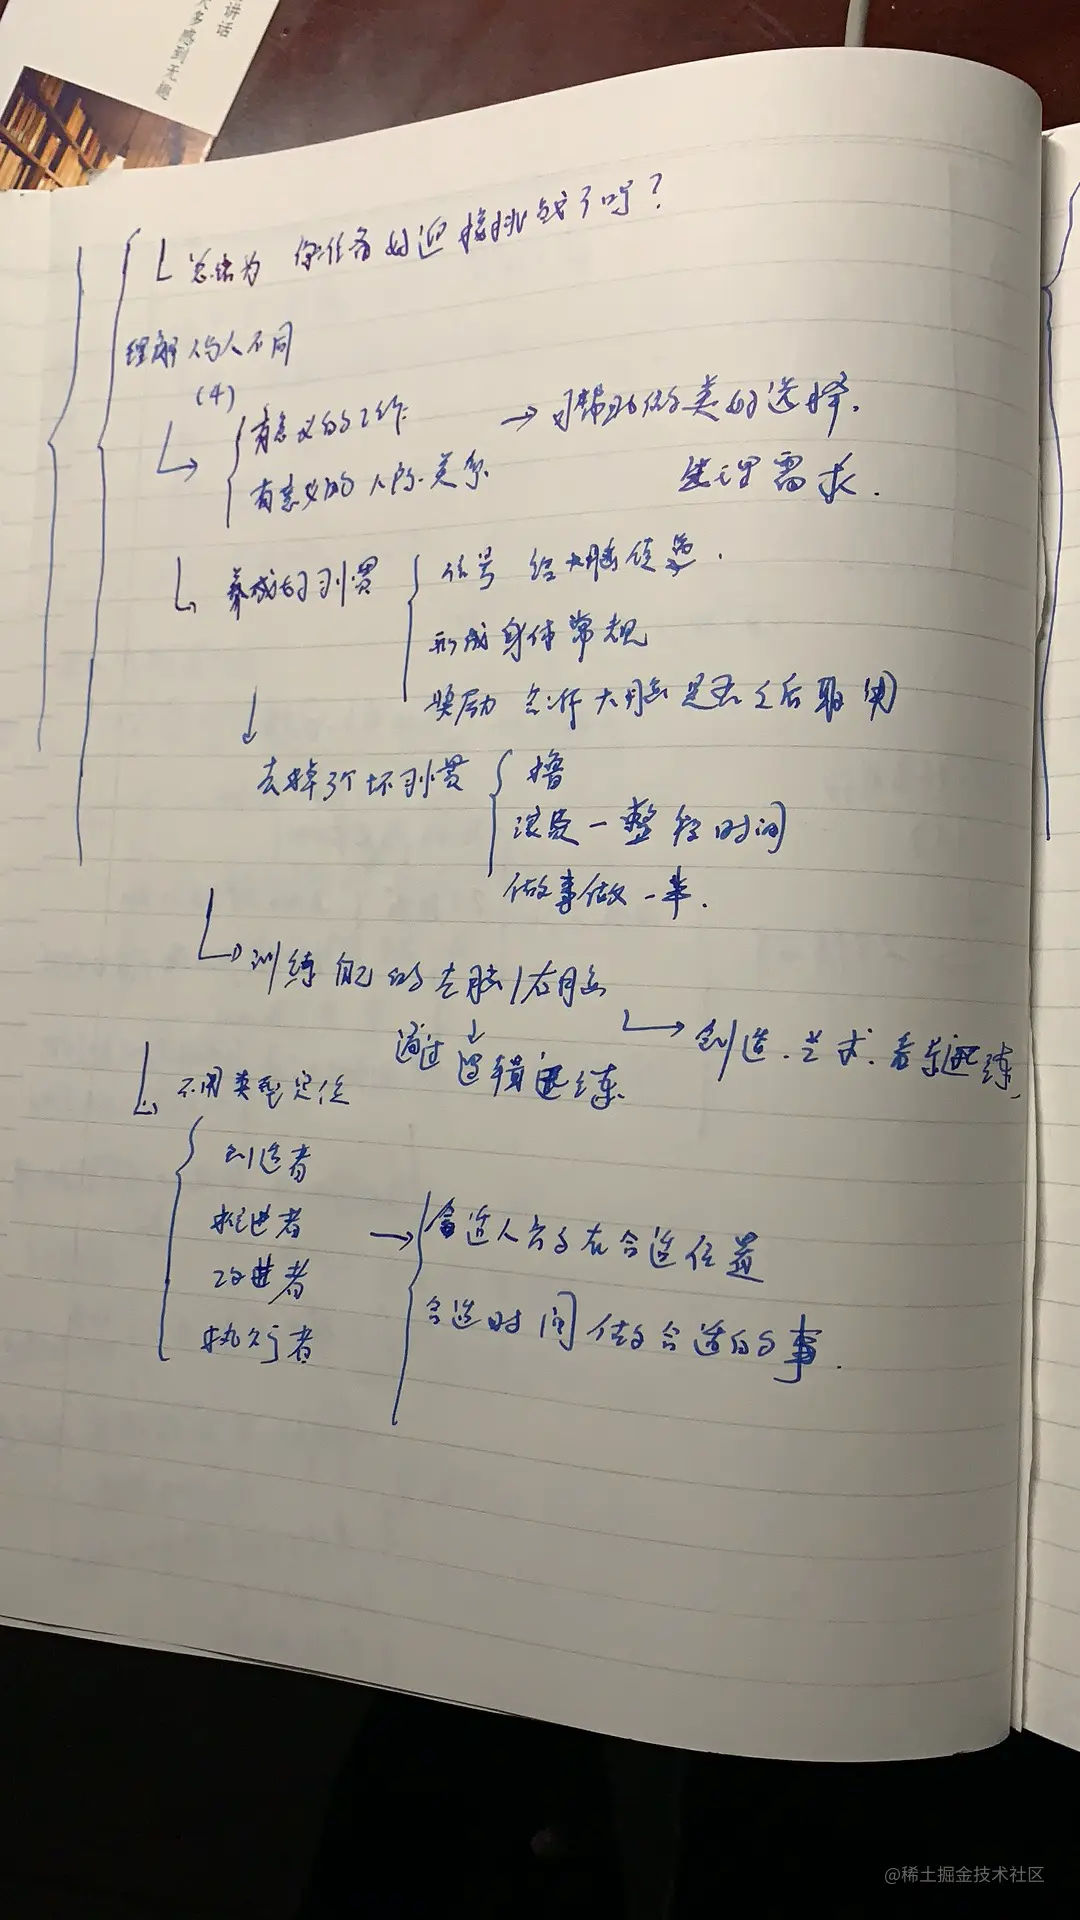 讲话
大多感到无趣
总结为 你准备好迎接挑战了吗?
理解人与人不同
(4)
有意义的工作
→可帮助做类好选择.
有意义的人际关系
生理需求.
养成好习惯
信号 给大脑信号.
形成身体常规
奖励 告诉大脑是否之后取用
去掉3个坏习惯
撸
浪费一整段时间
做事做一半.
训练自己的左脑/右脑
通过逻辑训练.
创造.艺术.音乐训练.
不同类型定位
创造者
推进者
改进者
执行者
→
合适人员在合适位置
合适时间做合适的事.
@稀土掘金技术社区